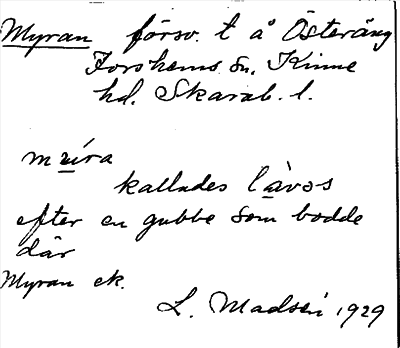 Myran försv. t å Österäng
Forshems sn. Kinne
hd. Skarab. l.
mu̲íra
kallades là̲vos
efter en gubbe som bodde
där
Myran ek.
L. Madsén 1929